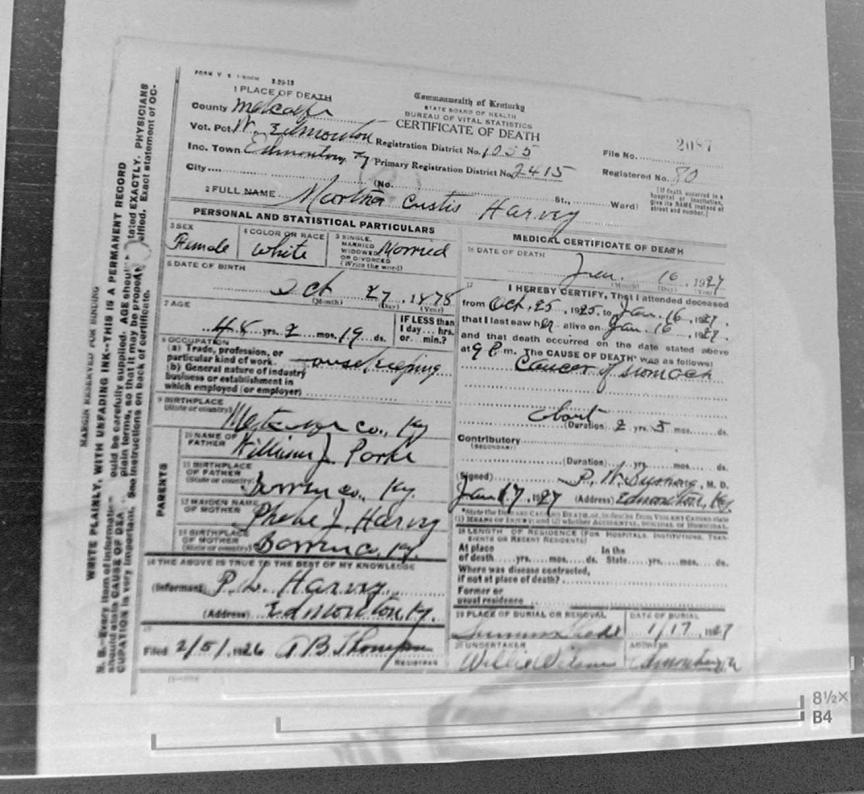 FORM V. S.
1 PLACE OF DEATH
County Metcalfe
Vot. Pct. W. Edmonton
Inc. Town Edmonton, Ky
City
(No. St., Ward)
Commonwealth of Kentucky
STATE BOARD OF HEALTH
BUREAU OF VITAL STATISTICS
CERTIFICATE OF DEATH
Registration District No. 1055
Primary Registration District No. 2415
File No. 2087
Registered No. 80
[If death occurred in a hospital or institution, give its NAME instead of street and number.]
2 FULL NAME Martha Custis Harvey
PERSONAL AND STATISTICAL PARTICULARS
3 SEX
Female
4 COLOR OR RACE
White
5 SINGLE, MARRIED WIDOWED OR DIVORCED (Write the word)
Married
6 DATE OF BIRTH
Oct 27, 1878
(Month) (Day) (Year)
7 AGE
48 yrs. 2 mos. 19 ds.
IF LESS than 1 day... hrs. or... min.?
8 OCCUPATION
(a) Trade, profession, or
particular kind of work
(b) General nature of industry
business or establishment in
which employed (or employer)
9 BIRTHPLACE
(State or country) Metcalfe co., Ky
PARENTS
10 NAME OF FATHER
William J.
11 BIRTHPLACE OF FATHER
(State or country) co., Ky.
12 MAIDEN NAME OF MOTHER
Phebe J. Harvey
13 BIRTHPLACE OF MOTHER
(State or country) Barren co, Ky.
14 THE ABOVE IS TRUE TO THE BEST OF MY KNOWLEDGE
(Informant) P. L. Harvey
(Address) Edmonton Ky.
15
Filed 2/5/, 1926 A B Thompson
REGISTRAR
MEDICAL CERTIFICATE OF DEATH
16 DATE OF DEATH
Jan. 16, 1927
(Month) (Day) (Year)
17 I HEREBY CERTIFY, That I attended deceased
from Oct. 25, 1925, to Jan. 16, 1927.
that I last saw her alive on Jan. 16, 1927.
and that death occurred on the date stated above
at 9 P. m. The CAUSE OF DEATH was as follows:
Cancer of stomach
about
(Duration) 2 yrs. 5 mos. ds.
Contributory
(SECONDARY)
(Duration) yrs. mos. ds.
(Signed) P. W., M. D.
Jan 17, 1927 (Address) Edmonton, Ky.
*State the DISEASE CAUSING DEATH, or, in deaths from VIOLENT CAUSES state
(1) MEANS OF INJURY; and (2) whether ACCIDENTAL, SUICIDAL or HOMICIDAL.
18 LENGTH OF RESIDENCE (FOR HOSPITALS, INSTITUTIONS, TRANSIENTS OR RECENT RESIDENTS)
At place of death yrs. mos. ds. In the State yrs. mos. ds.
Where was disease contracted,
if not at place of death?
Former or
usual residence
19 PLACE OF BURIAL OR REMOVAL
Summer Shade
DATE OF BURIAL
1/17, 1927
20 UNDERTAKER
Willie Wilson
ADDRESS
MARGIN RESERVED FOR BINDING
WRITE PLAINLY, WITH UNFADING INK--THIS IS A PERMANENT RECORD
8½×
B4